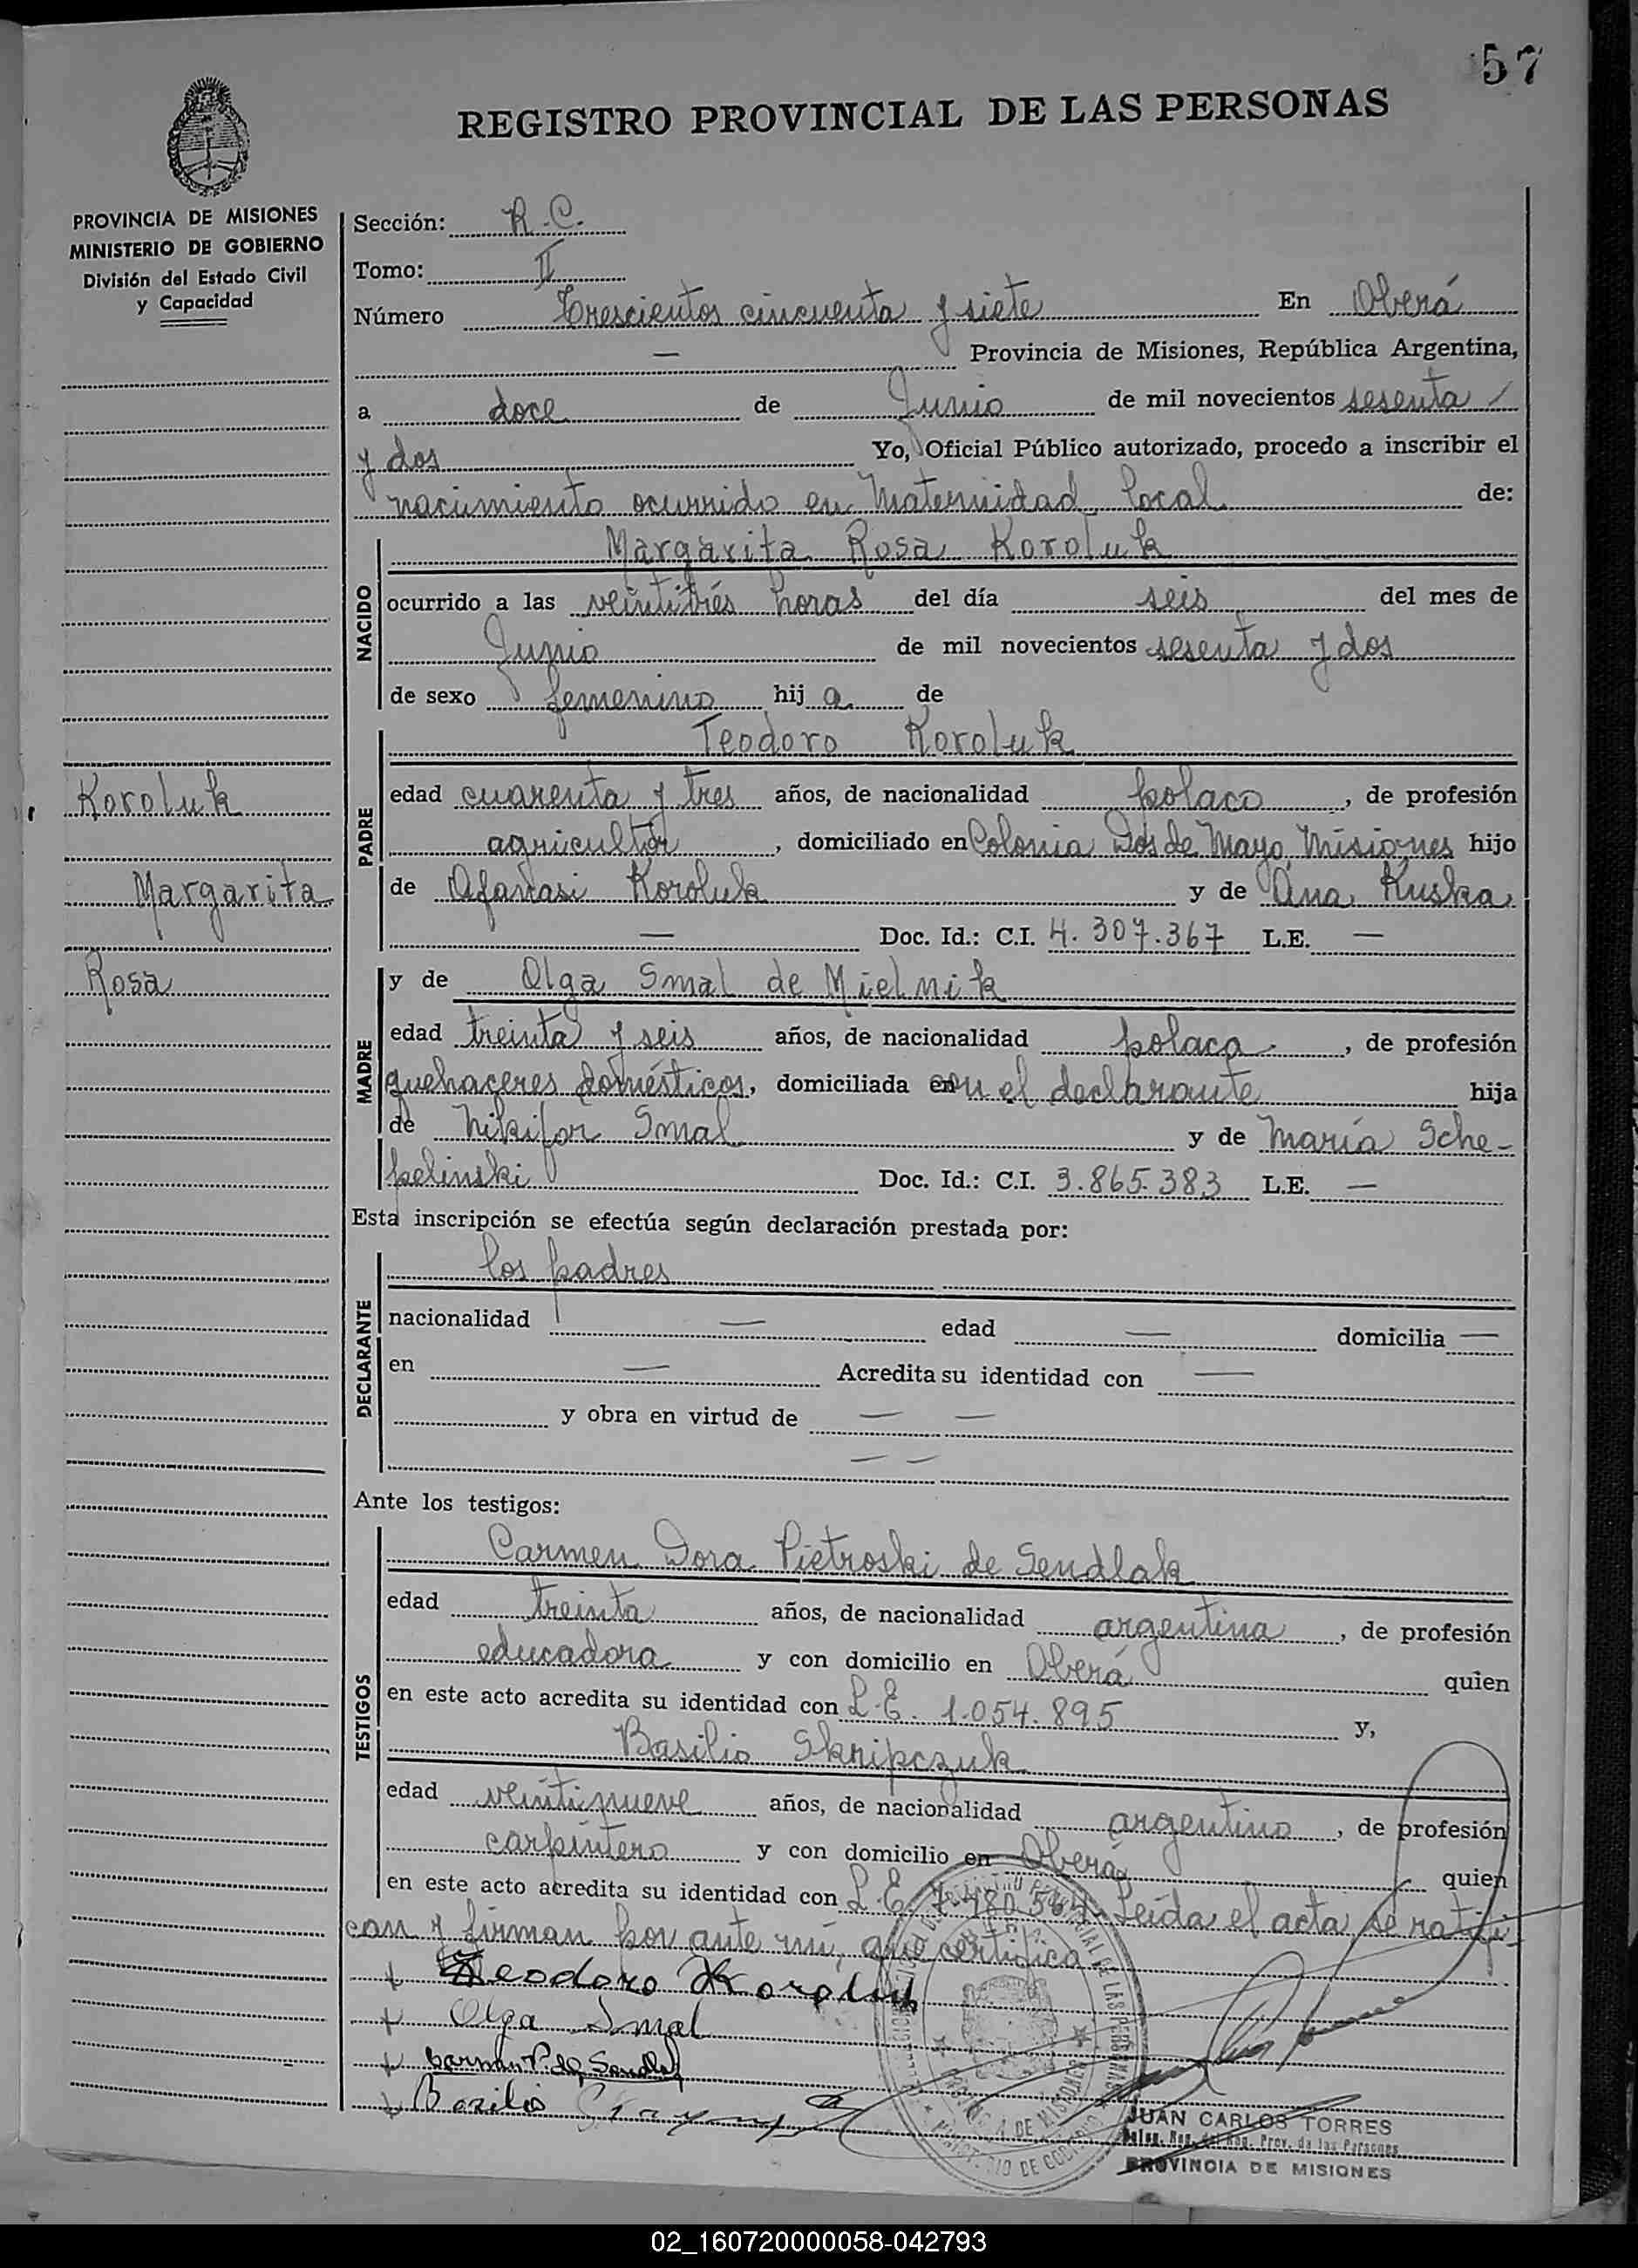 57
REGISTRO PROVINCIAL DE LAS PERSONAS
PROVINCIA DE MISIONES
MINISTERIO DE GOBIERNO
División del Estado Civil
y Capacidad
Koroluk
Margarita
Rosa
Sección: R.C.
Tomo: II
Número Trescientos cincuenta y siete En Oberá
— Provincia de Misiones, República Argentina,
a doce de Junio de mil novecientos sesenta
y dos Yo, Oficial Público autorizado, procedo a inscribir el
nacimiento ocurrido en Maternidad Local de:
NACIDO
Margarita Rosa Koroluk
ocurrido a las veintitrés horas del día seis del mes de
Junio de mil novecientos sesenta y dos
de sexo femenino hij a de
PADRE
Teodoro Koroluk
edad cuarenta y tres años, de nacionalidad polaco, de profesión
agricultor, domiciliado en Colonia Dos de Mayo, Misiones hijo
de Afantasi Koroluk y de Ana Kuska
— Doc. Id.: C.I. 4.307.367 L.E. —
MADRE
y de Olga Smal de Mielnik
edad treinta y seis años, de nacionalidad polaca, de profesión
quehaceres domésticos, domiciliada con el declarante hija
de Nikifor Smal y de María Sche-
pelinski Doc. Id.: C.I. 3.865.383 L.E. —
Esta inscripción se efectúa según declaración prestada por:
DECLARANTE
los padres
nacionalidad — edad — domicilia —
en — Acredita su identidad con —
y obra en virtud de — —
— —
Ante los testigos:
TESTIGOS
Carmen Dora Pietroski de Sendlak
edad treinta años, de nacionalidad argentina, de profesión
educadora y con domicilio en Oberá quien
en este acto acredita su identidad con L.E. 1.054.895 y,
Basilio Skripczuk
edad veintinueve años, de nacionalidad argentino, de profesión
carpintero y con domicilio en Oberá quien
en este acto acredita su identidad con L.E. Leída el acta, se ratifi-
can y firman por ante mí, que certifico
Teodoro Koroluk
Olga Smal
Carmen P. de Sendlak
Basilio
JUAN CARLOS TORRES
Deleg. Reg. del Reg. Prov. de las Personas
PROVINCIA DE MISIONES
02_160720000058-042793